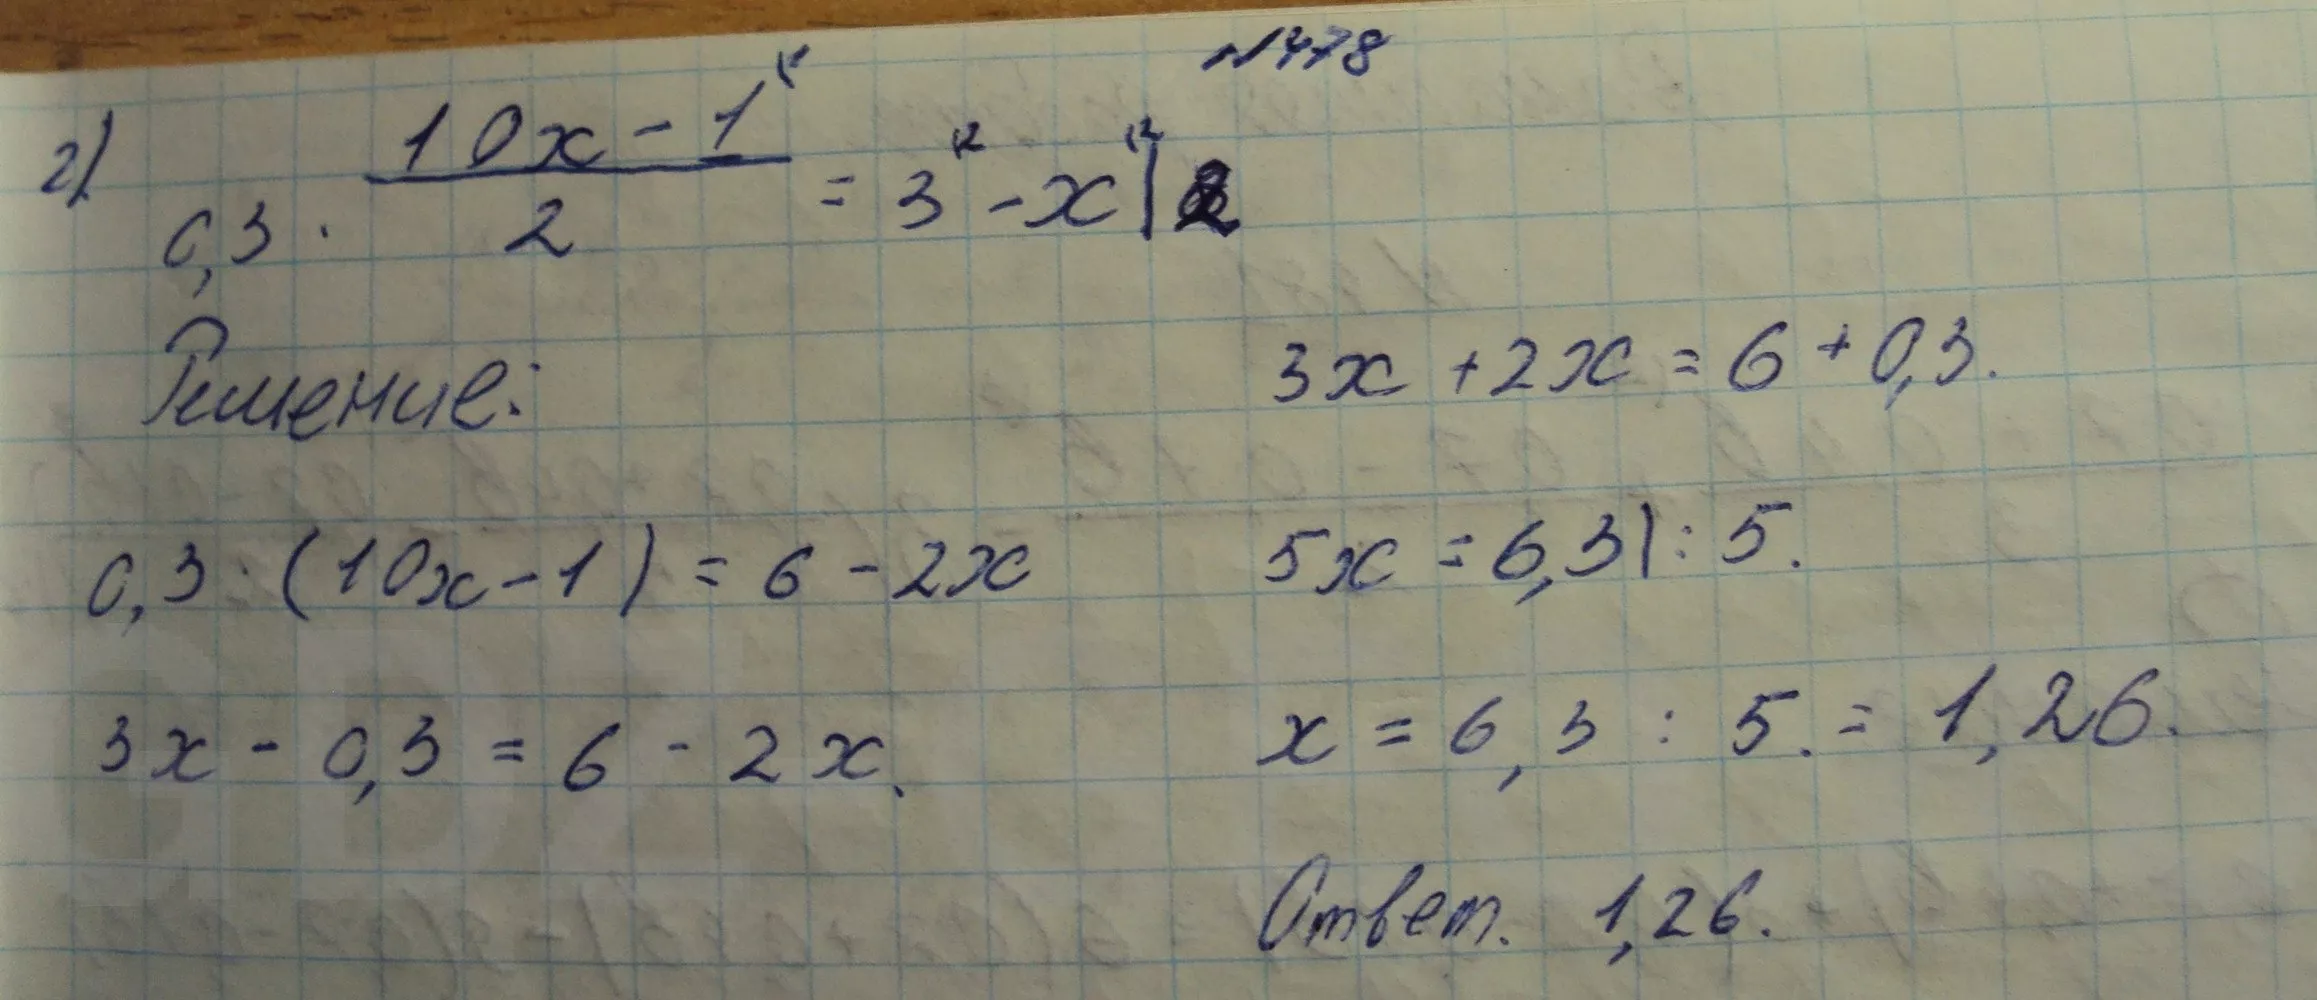 №478
г) 0,3 · (10x - 1)/2 = 3 - x | 2
Решение:
0,3 · (10x - 1) = 6 - 2x
3x - 0,3 = 6 - 2x.
3x + 2x = 6 + 0,3.
5x = 6,3 | : 5.
x = 6,3 : 5. = 1,26.
Ответ. 1,26.